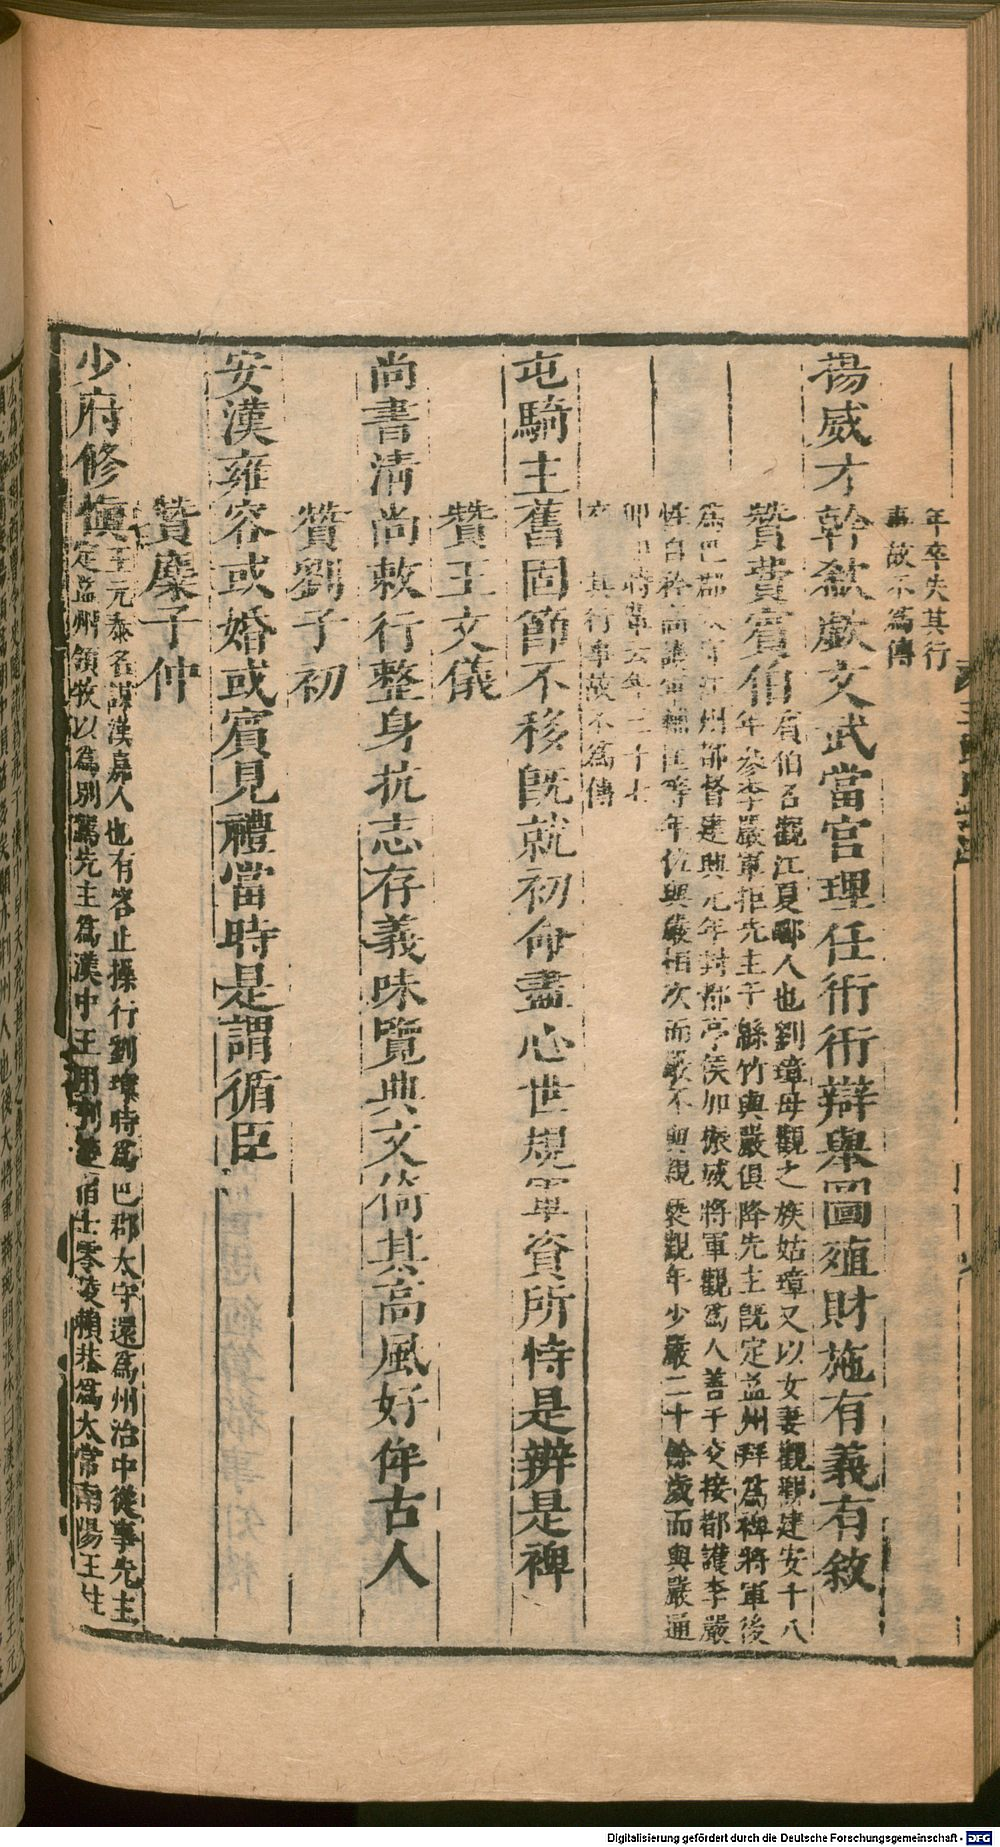 年卒失其行
事故不爲傳
揚威才幹欷歔文武當官理任衎衎辯舉圖殖財施有義有敘
贊費賓伯
賓伯名觀江夏鄳人也劉璋母觀之族姑璋又以女妻觀觀建安十八
年參李嚴軍拒先主于緜竹與嚴俱降先主旣定益州拜爲裨將軍後
爲巴郡太守江州都督建興元年封都亭侯加振威將軍觀爲人善于交接都護李嚴
性自矜高護軍輔匡等年位與嚴相次而嚴不與親䙝觀年少嚴二十餘歲而與嚴通
卽如時輩云年三十七
卒失其行事故不爲傳
屯騎主舊固節不移旣就初命盡心世規軍資所恃是辨是裨
贊王文儀
尚書淸尚敕行整身抗志存義味覽典文倚其高風好侔古人
贊劉子初
安漢雍容或婚或賓見禮當時是謂循臣
贊麋子仲
少府修愼
王元泰名謀漢嘉人也有容止操行劉璋時爲巴郡太守還爲州治中從事先主
定益州領牧以爲別駕先主爲漢中王用荆楚宿士零陵賴恭爲太常南陽王柱
Digitalisierung gefördert durch die Deutsche Forschungsgemeinschaft - DFG